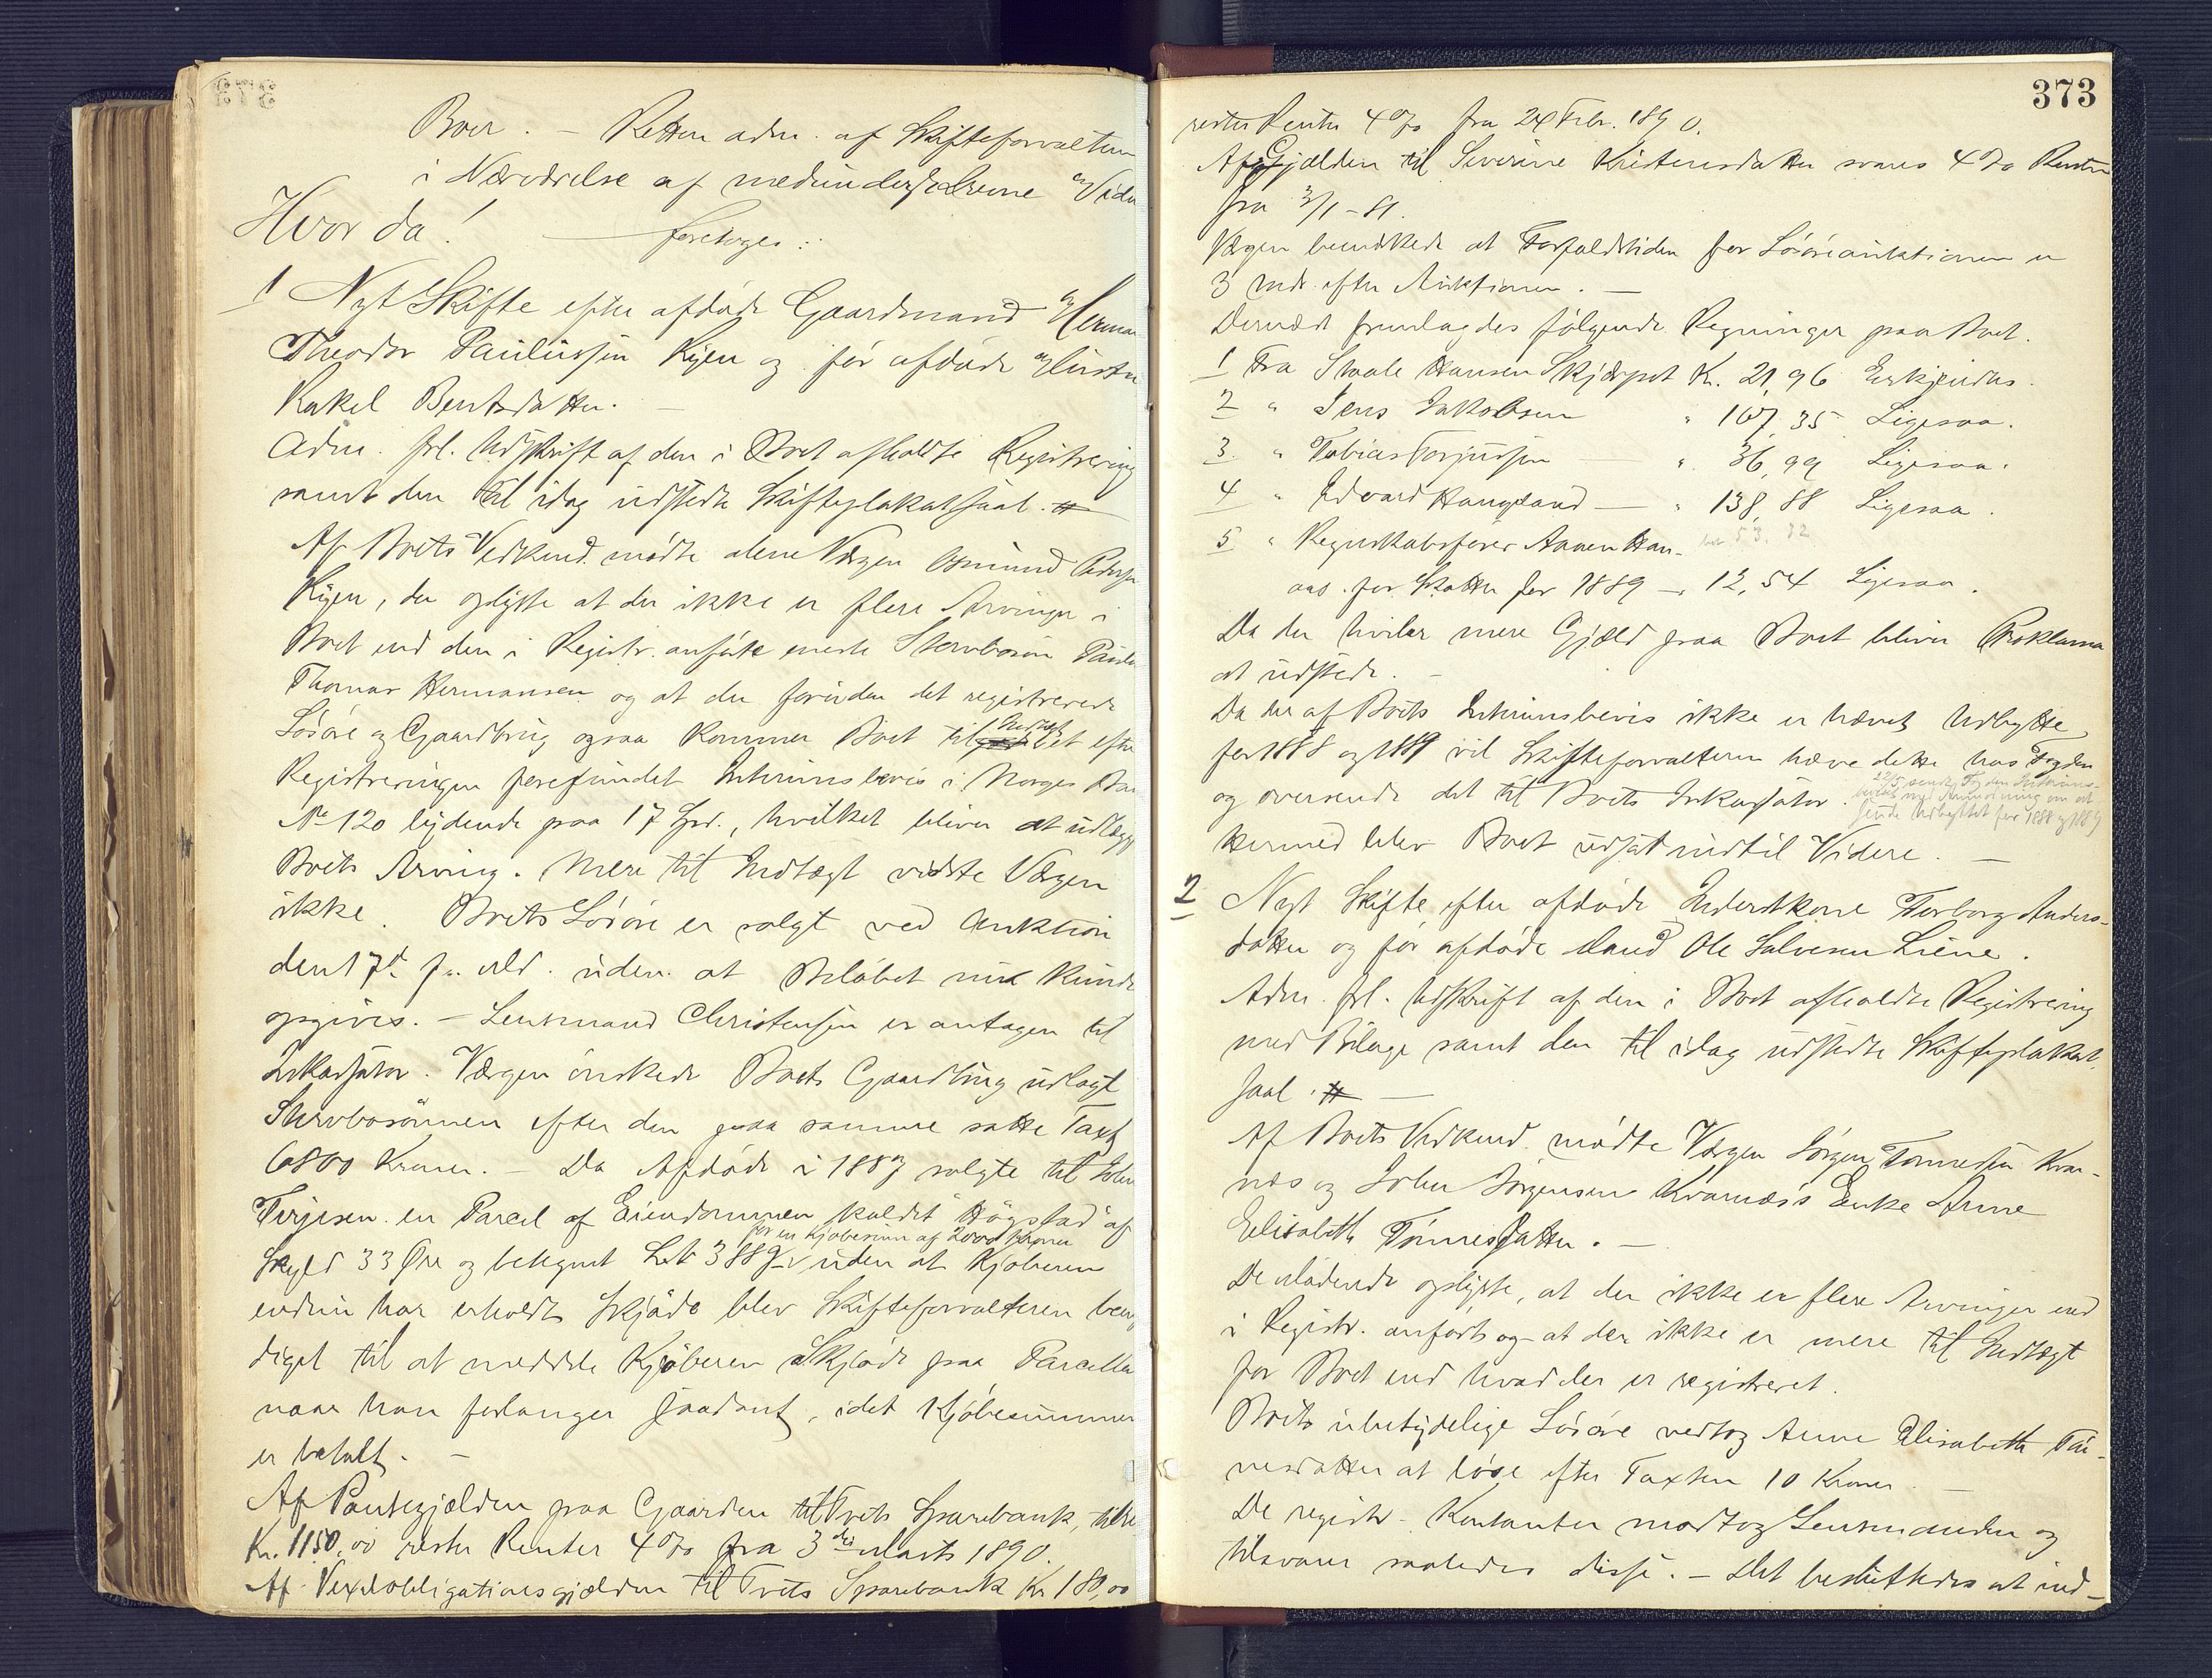 Boer. – Retten adm. af Skifteforvalteren
i Nærværelse af medunderskrevne Vidn
Hvor da! — foretoges:
1 Nyt Skifte efter afdøde Gaardmand Herman
Theodor Paulussen Kyen og før afdøde Hustru
Rakel Bentsdatter. —
Adm. frl. Udskrift af den i Boet afholdte Registrering
samt den til idag udstedte Skifteplakat saal. #
Af Boets Vedkmd. mødte alene Værgen Osmund Peders
Kyen, der oplyste at der ikke er flere Arvinger i
Boet end den i Registr. anførte eneste Stervbosøn Paulus
Thomas Hermansen og at der foruden det registrerede
Løsøre og Gaardbrug ogsaa kommer Boet til Indtægt et efter
Registreringen forefundet Interimsbevis i Norges Ban
No 120 lydende paa 17 Spd., hvilket bliver at udlægge
Boets Arving. Mere til Indtægt vidste Værgen
ikke. Boets Løsøre er solgt ved Auktion
den 17de f. Md. uden at Beløbet nu kunde
opgives. – Lensmand Christensen er antagen til
Inkassator. Værgen ønskede Boets Gaardbrug udlagt
Stervbosønnen efter den paa samme satte Taxt
6800 Kroner. – Da Afdøde i 1887 solgte til John
Terjesen en Parcel af Eiendommen kaldet "Høgstad" af
for en Kjøbesum af 2000 Kroner
Skyld 33 Øre og betegnet Lit 388 uden at Kjøberen
endnu har erholdt Skjøde blev Skifteforvalteren bemyn
diget til at meddele Kjøberen Skjøde paa Parcellen
naar han forlanger saadant, idet Kjøbesummen
er betalt. –
Af Pantegjælden paa Gaarden til Tveits Sparebank,
Kr. 1150,00 rester Renter 4% fra 3die Marts 1890.
Af Vexelobligationsgjælden til Tveits Sparebank Kr 180,00
373
rester Renter 4% fra 24 Febr. 1890.
Af Gjælden til Severine Kristensdatter svares 4% Renter
fra 3/1 – 81.
Værgen bemærkede at Forfaldstiden for Løsøreauktionen er
3 mdr. efter Auktionen. —
Dernæst fremlagdes følgende Regninger paa Boet.
1 Fra Staale Hansen Skjærpet Kr. 21,96 Erkjendes.
2 " Jens Jakobsen " 107,35 Ligesaa.
3. " Tobias Torjussen " 36,99 Ligesaa.
4 " Edvard Haugland — " 138,88 Ligesaa.
5 " Regnskabsfører Aanen Han-
aas for Skatter for 1889 –, 12,54 Ligesaa.
Da der hviler mere Gjæld paa Boet bliver Proklama
at udstede. –
Da der af Boets Interimsbevis ikke er hævet Udbytte
for 1888 og 1889 vil Skifteforvalteren hæve dette hos Fogden
og oversende det til Boets Inkassator.
22/5 sendt Fogden Interims-
bevis med Anmodning om at
sende Udbyttet for 1888 og 1889
Hermed blev Boet udsat indtil Videre. —
2 Nyt Skifte efter afdøde Inderstkone Torborg Anders-
datter og før afdøde Mand Ole Salvesen Liene.
Adm. frl. Udskrift af den i Boet afholdte Registrering
med Bilage samt den til idag udstedte Skifteplakat,
saal. # —
Af Boets Vedkmd. mødte Værgen Jørgen Tønnesen Kvar-
næs og John Jørgensen Kvarnæs's Enke Anne
Elisabeth Tønnesdatter. —
De Mødende oplyste, at der ikke er flere Arvinger end
i Registr. anført og at der ikke er mere til Indtægt
for Boet end hvad der er registreret.
Boets ubetydelige Løsøre vedtog Anne Elisabeth Tøn-
nesdatter at løse efter Taxten 10 Kroner. —
De registr. Kontanter modtog Lensmanden og
tilsvarer saaledes disse. – Det besluttedes at ind-